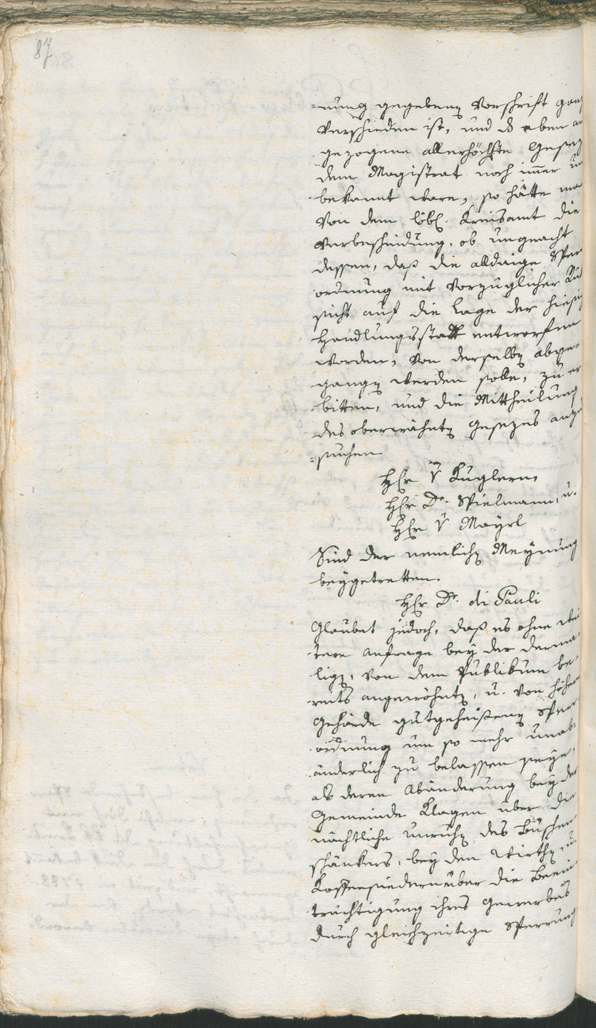 87
-nung gegebeng Vorschrift ganz
Verschieden ist, und das eben an
gezogene allerhöchste Gesez
dem Magistrat noch immer un
bekannt ware, so hätte man
Von dem löbl. Kreisamt die
Verbescheidung, ob ungeacht
dessen, daß die alldaige Sperr
ordnung mit vorzüglicher Rük
sicht auf die Lage der hiesig
Handlungsstatt entworfen
worden, von derselbg abge-
gangg werden solle, zu er
bitten, und die Mittheilung
des oberwähntg Gesezes anzu
-suchen.
Hr v Kuglern,
Hr Dr. Spielmann, u.
Hr v Mayrl
Sind der nemlichg Meynung
beygetretten.
Hr Dr. di Pauli
Glaubet jedoch, daß es ohne wei
tere Anfrage bey der derma-
ligg, von dem Publikum be-
reits angewöhntg, u. von höher
Gehörde gutgeheißeng Sperr
ordnung um so mehr unab-
änderlich zu belassen seye,
als deren Abänderung bey der
Gemeinde Klagen über die
nächtliche Unruhg des Buschen-
schänkers, bey den Wirthg und
Koffeesiedern über die Beein-
trächtigung ihres Gewerbes
durch gleichzeitige Sperrung